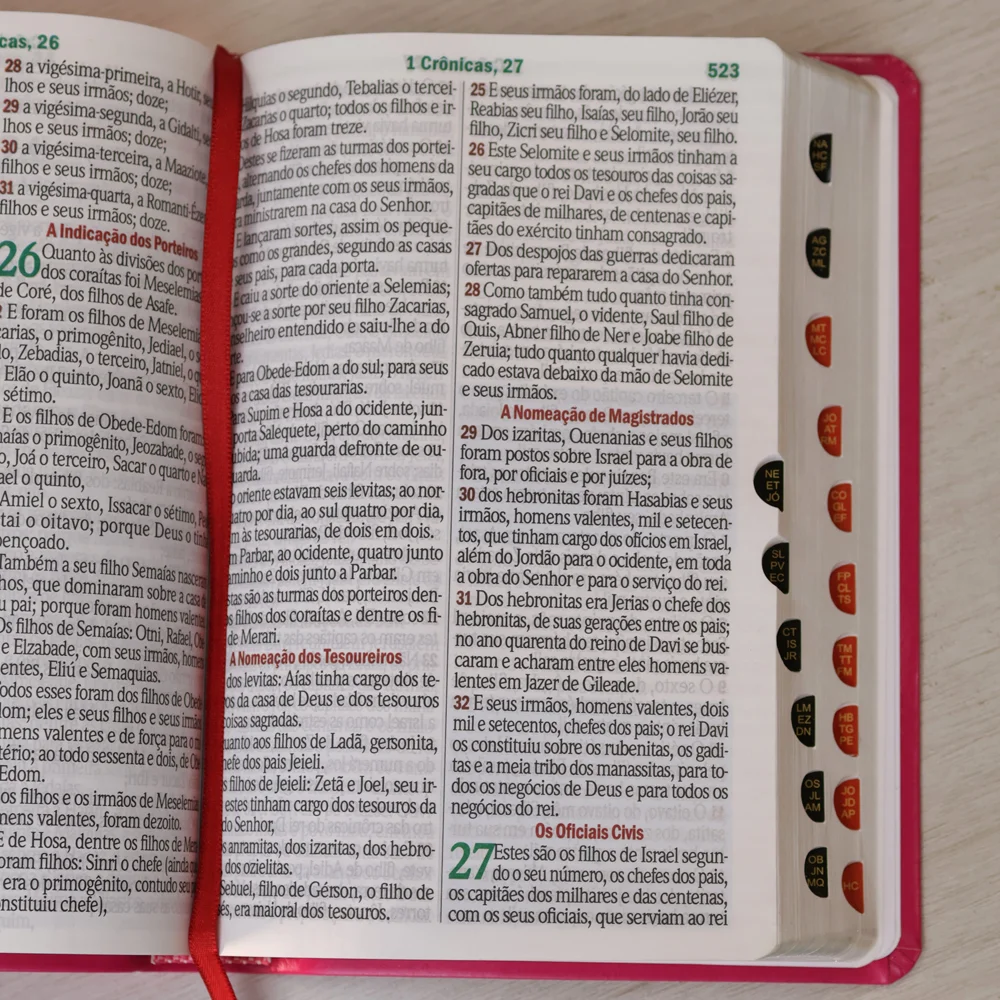 cas, 26
28 a vigésima-primeira, a Hotir,
lhos e seus irmãos; doze;
29 a vigésima-segunda, a Gidalti,
lhos e seus irmãos; doze;
30 a vigésima-terceira, a Maaziote,
filhos e seus irmãos; doze;
31 a vigésima-quarta, a Romanti-Ézer
filhos e seus irmãos; doze.
A Indicação dos Porteiros
26 Quanto às divisões dos por
dos coraítas foi Meselemias
de Coré, dos filhos de Asafe.
E foram os filhos de Meselemi
carias, o primogênito, Jediael, o s
lo, Zebadias, o terceiro, Jatniel, o q
Elão o quinto, Joanã o sexto, Elio
sétimo.
E os filhos de Obede-Edom foram
naías o primogênito, Jeozabade, o seg
o, Joá o terceiro, Sacar o quarto e N
ael o quinto,
Amiel o sexto, Issacar o sétimo, Pe
tai o oitavo; porque Deus o tinh
pençoado.
Também a seu filho Semaías nasceram
hos, que dominaram sobre a casa d
u pai; porque foram homens valentes
Os filhos de Semaías: Otni, Rafael, Obe
e Elzabade, com seus irmãos, homens
entes, Eliú e Semaquias.
Todos esses foram dos filhos de Obede
dom; eles e seus filhos e seus irmãos
mens valentes e de força para o mi
tério; ao todo sessenta e dois, de Obe
Edom.
os filhos e os irmãos de Meselemi
mens valentes, foram dezoito.
E de Hosa, dentre os filhos de Mera
oram filhos: Sinri o chefe (ainda qu
era o primogênito, contudo seu p
onstituiu chefe),
1 Crônicas, 27
523
Hilquias o segundo, Tebalias o tercei-
Zacarias o quarto; todos os filhos e ir-
os de Hosa foram treze.
Destes se fizeram as turmas dos portei-
alternando os chefes dos homens da
rda, juntamente com os seus irmãos,
a ministrarem na casa do Senhor.
E lançaram sortes, assim os peque-
s como os grandes, segundo as casas
seus pais, para cada porta.
E caiu a sorte do oriente a Selemias;
çou-se a sorte por seu filho Zacarias,
nselheiro entendido e saiu-lhe a do
rte.
E para Obede-Edom a do sul; para seus
os a casa das tesourarias.
Para Supim e Hosa a do ocidente, jun-
porta Salequete, perto do caminho
ubida; uma guarda defronte de ou-
uarda.
o oriente estavam seis levitas; ao nor-
uatro por dia, ao sul quatro por dia,
m às tesourarias, de dois em dois.
m Parbar, ao ocidente, quatro junto
aminho e dois junto a Parbar.
stas são as turmas dos porteiros den-
os filhos dos coraítas e dentre os fi-
de Merari.
A Nomeação dos Tesoureiros
dos levitas: Aías tinha cargo dos te-
os da casa de Deus e dos tesouros
coisas sagradas.
uanto aos filhos de Ladã, gersonita,
hefe dos pais Jeieli.
s filhos de Jeieli: Zetã e Joel, seu ir-
estes tinham cargo dos tesouros da
do Senhor,
os anramitas, dos izaritas, dos hebro-
, dos ozielitas.
Sebuel, filho de Gérson, o filho de
és, era maioral dos tesouros.
25 E seus irmãos foram, do lado de Eliézer,
Reabias seu filho, Isaías, seu filho, Jorão seu
filho, Zicri seu filho e Selomite, seu filho.
26 Este Selomite e seus irmãos tinham a
seu cargo todos os tesouros das coisas sa-
gradas que o rei Davi e os chefes dos pais,
capitães de milhares, de centenas e capi-
tães do exército tinham consagrado.
27 Dos despojos das guerras dedicaram
ofertas para repararem a casa do Senhor.
28 Como também tudo quanto tinha con-
sagrado Samuel, o vidente, Saul filho de
Quis, Abner filho de Ner e Joabe filho de
Zeruia; tudo quanto qualquer havia dedi-
cado estava debaixo da mão de Selomite
e seus irmãos.
A Nomeação de Magistrados
29 Dos izaritas, Quenanias e seus filhos
foram postos sobre Israel para a obra de
fora, por oficiais e por juízes;
30 dos hebronitas foram Hasabias e seus
irmãos, homens valentes, mil e setecen-
tos, que tinham cargo dos ofícios em Israel,
além do Jordão para o ocidente, em toda
a obra do Senhor e para o serviço do rei.
31 Dos hebronitas era Jerias o chefe dos
hebronitas, de suas gerações entre os pais;
no ano quarenta do reino de Davi se bus-
caram e acharam entre eles homens va-
lentes em Jazer de Gileade.
32 E seus irmãos, homens valentes, dois
mil e setecentos, chefes dos pais; o rei Davi
os constituiu sobre os rubenitas, os gadi-
tas e a meia tribo dos manassitas, para to-
dos os negócios de Deus e para todos os
negócios do rei.
Os Oficiais Civis
27 Estes são os filhos de Israel segun-
do o seu número, os chefes dos pais,
os capitães dos milhares e das centenas,
com os seus oficiais, que serviam ao rei
NA
HC
SF
AG
ZC
ML
MT
MC
LC
JO
AT
RM
NE
ET
JÓ
CO
GL
EF
SL
PV
EC
FP
CL
TS
CT
IS
JR
TM
TT
FM
LM
EZ
DN
HB
TG
PE
OS
JL
AM
JO
JD
AP
OB
JN
MQ
HC